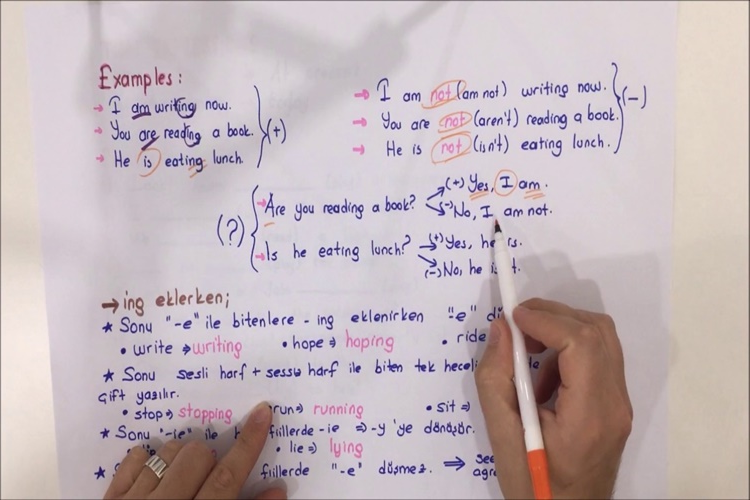 Examples:
→ I am writing now.
→ You are reading a book.
→ He is eating lunch.
(+)
→ I am not (am not) writing now.
→ You are not (aren't) reading a book.
→ He is not (isn't) eating lunch.
(-)
(?)
→ Are you reading a book?
(+) Yes, I am.
(-) No, I am not.
→ Is he eating lunch?
(+) Yes, he is.
(-) No, he
→ ing eklerken;
★ Sonu "-e" ile bitenlere -ing eklenirken "-e"
• write ⇒ writing • hope ⇒ hoping • ride
★ Sonu sesli harf + sessiz harf ile biten tek heceli
çift yazılır.
• stop ⇒ stopping run ⇒ running • sit ⇒
★ Sonu "-ie" ile fiillerde -ie ⇒ -y 'ye dönüşür.
• lie ⇒ lying
fiillerde "-e" düşmez. ⇒ see